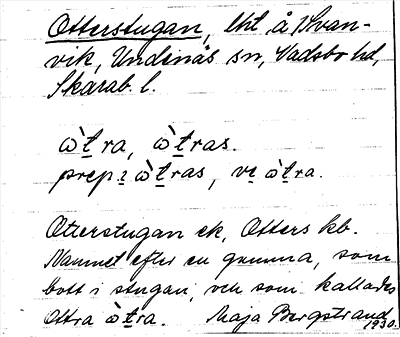 Otterstugan, lht å Svan-
vik, Undenäs sn, Vadsbo hd,
Skarab. l.
ὼt̲ra, ὼt̲ras.
prep. i ὼt̲ras, ve ὼt̲ra.
Otterstugan ek, Otters kb.
Namnet efter en gumma, som
bott i stugan, och som kallades
Ottra ὼt̲ra. Maja Bergstrand
1930.